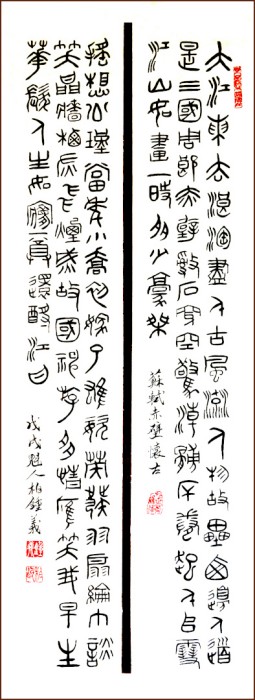 大江東去浪淘盡千古風流人物故壘西邊人道
是三國周郎赤壁亂石穿空驚濤拍岸捲起千堆雪
江山如畫一時多少豪傑
蘇軾赤壁懷古
遙想公瑾當年小喬初嫁了雄姿英發羽扇綸巾談
笑間檣櫓灰飛煙滅故國神游多情應笑我早生
華髮人生如夢一尊還酹江月
戊戌魁人柏鍾義